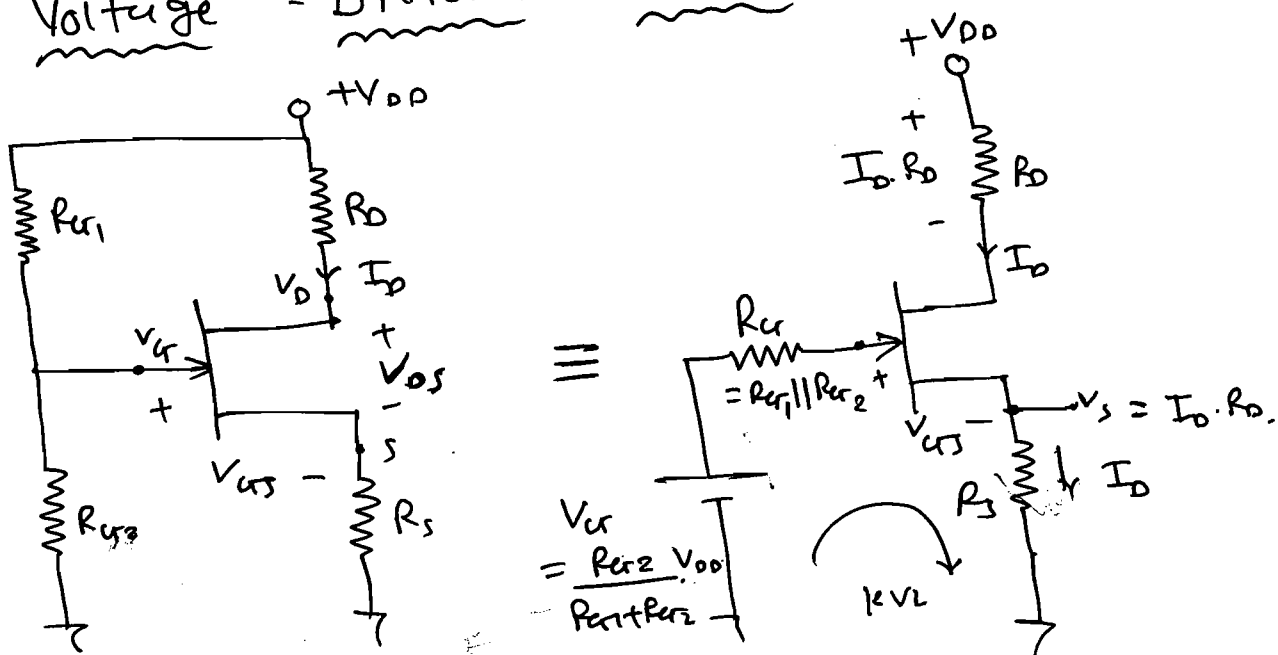 Voltage -
+VDD
RG1
RD
VD
ID
VG
+
+
VDS
-
S
VGS -
RG2
RS
≡
+VDD
+
ID.RD
RD
-
ID
RG
= RG1||RG2
+
VGS -
VS = ID.RD.
RS
ID
VG
= RG2 VDD
RG1+RG2
KVL